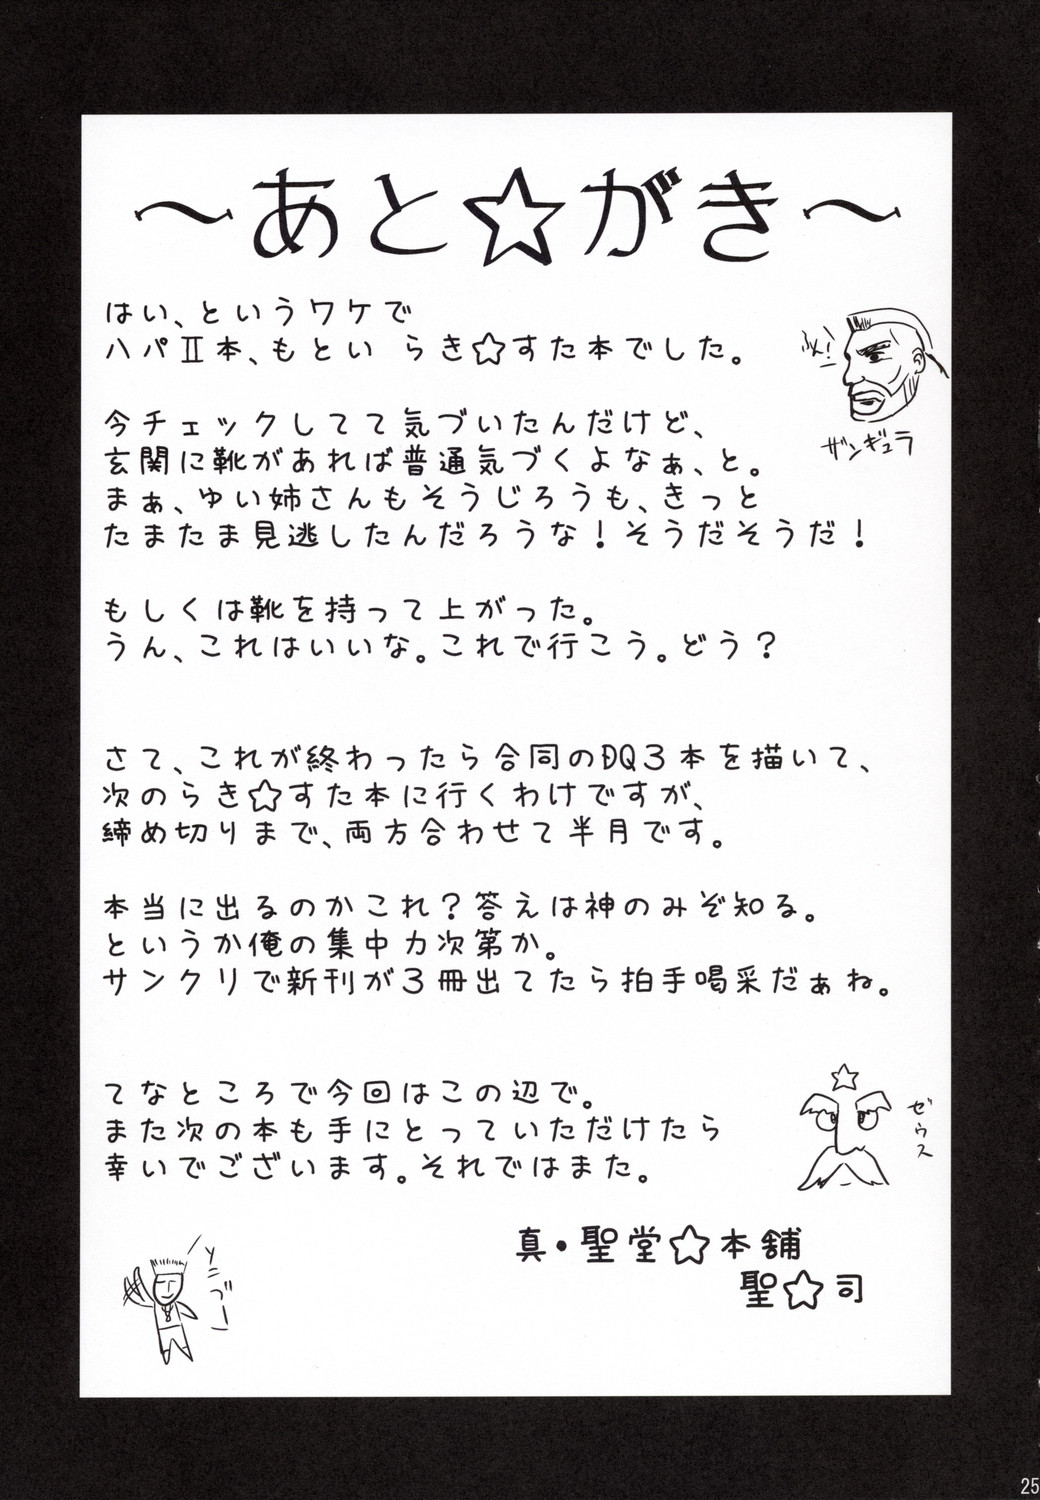 ～あと☆がき～
はい、というワケで
ハパⅡ本、もとい らき☆すた本でした。
ふん!
ザンギュラ
今チェックしてて気づいたんだけど、
玄関に靴があれば普通気づくよなぁ、と。
まぁ、ゆい姉さんもそうじろうも、きっと
たまたま見逃したんだろうな！そうだそうだ！
もしくは靴を持って上がった。
うん、これはいいな。これで行こう。どう？
さて、これが終わったら合同のDQ3本を描いて、
次のらき☆すた本に行くわけですが、
締め切りまで、両方合わせて半月です。
本当に出るのかこれ？答えは神のみぞ知る。
というか俺の集中力次第か。
サンクリで新刊が3冊出てたら拍手喝采だぁね。
てなところで今回はこの辺で。
また次の本も手にとっていただけたら
幸いでございます。それではまた。
ゼウス
真・聖堂☆本舗
聖☆司
25